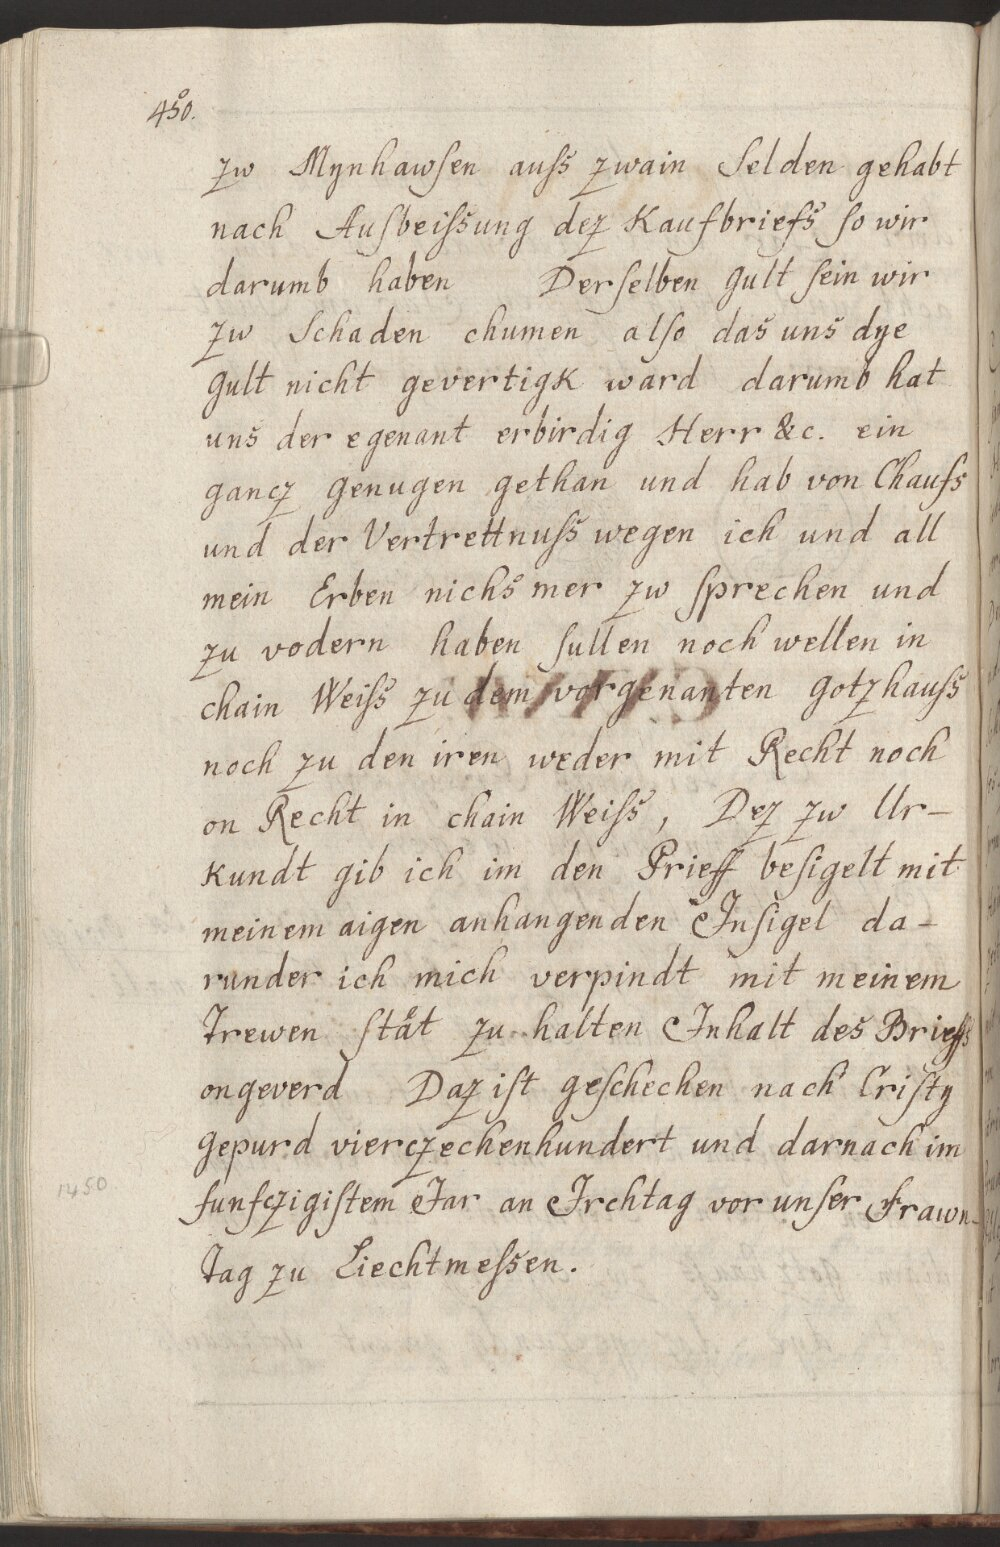 450.
zw Mynhawsen auss zwain Selden gehabt
nach Ausbeissung dez Kaufbriefs so wir
darumb haben Derselben Gult sein wir
zw Schaden chumen also das uns dye
Gult nicht gevertigk ward darumb hat
uns der egenant erbirdig Herr &c. ein
gancz genugen gethan und hab von Chaufs
und der Vertrettnuss wegen ich und all
mein Erben nichs mer zw sprechen und
zu vodern haben sullen noch wellen in
chain Weiss zu dem vorgenanten Gotzhauss
noch zu den iren weder mit Recht noch
on Recht in chain Weiss, Dez zw Ur-
kundt gib ich im den Prieff besigelt mit
meinem aigen anhangenden Insigel da-
runder ich mich verpindt mit meinem
Trewen stät zu halten Inhalt des Brieffs
ongeverd Daz ist geschechen nach Cristy
Gepurd vierczechenhundert und darnach im
1450
funfczigistem Jar an Irchtag vor unser Frawn-
Tag zu Liechtmessen.